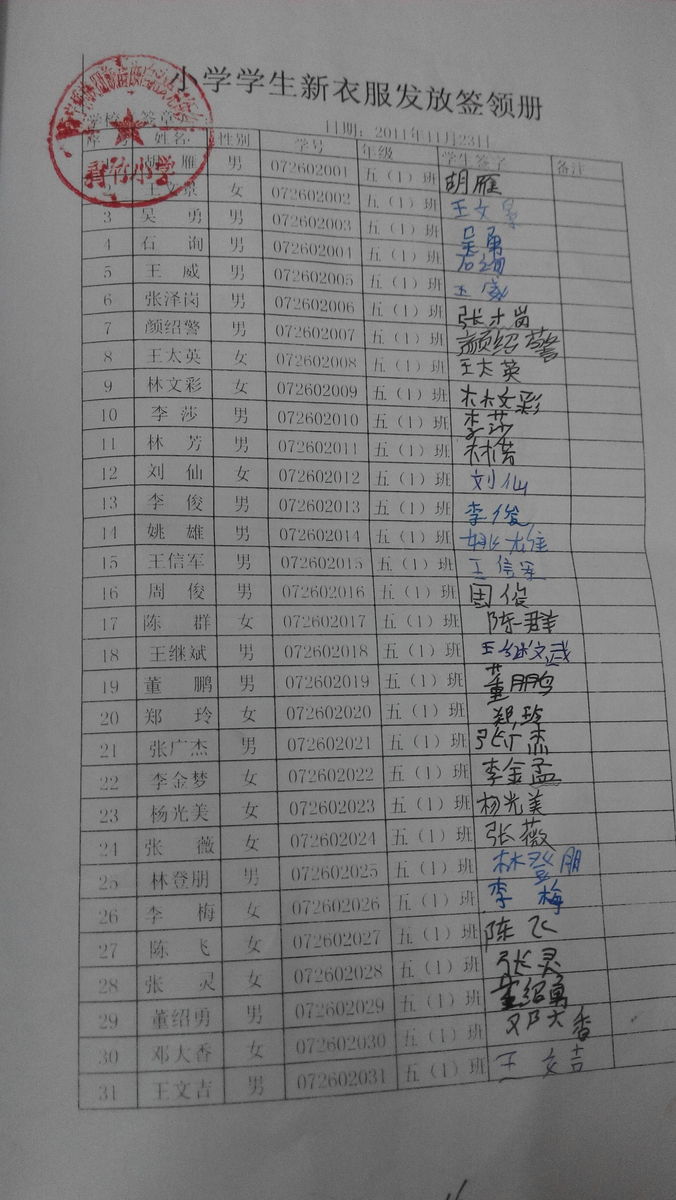 小学学生新衣服发放签领册
学校 签章
日期：2011年11月23日
青竹小学
姓名 性别 学号 年级 学生签字 备注
胡雁 男 072602001 五（1）班 胡雁
2 王文景 女 072602002 五（1）班 王文景
3 吴勇 男 072602003 五（1）班 吴勇
4 石询 男 072602004 五（1）班 石询
5 王威 男 072602005 五（1）班 王威
6 张泽岗 男 072602006 五（1）班 张才岗
7 颜绍警 男 072602007 五（1）班 颜绍警
8 王太英 女 072602008 五（1）班 王太英
9 林文彩 女 072602009 五（1）班 林文彩
10 李莎 男 072602010 五（1）班 李莎
11 林芳 男 072602011 五（1）班 林芳
12 刘仙 女 072602012 五（1）班 刘仙
13 李俊 男 072602013 五（1）班 李俊
14 姚雄 男 072602014 五（1）班 姚雄
15 王信军 男 072602015 五（1）班 王信军
16 周俊 男 072602016 五（1）班 周俊
17 陈群 女 072602017 五（1）班 陈群
18 王继斌 男 072602018 五（1）班 王继斌
19 董鹏 男 072602019 五（1）班 董鹏
20 郑玲 女 072602020 五（1）班 郑玲
21 张广杰 男 072602021 五（1）班 张广杰
22 李金梦 女 072602022 五（1）班 李金孟
23 杨光美 女 072602023 五（1）班 杨光美
24 张薇 女 072602024 五（1）班 张薇
25 林登朋 男 072602025 五（1）班 林登朋
26 李梅 女 072602026 五（1）班 李梅
27 陈飞 女 072602027 五（1）班 陈飞
28 张灵 女 072602028 五（1）班 张灵
29 董绍勇 男 072602029 五（1）班 董绍勇
30 邓大香 女 072602030 五（1）班 邓大香
31 王文吉 男 072602031 五（1）班 王文吉